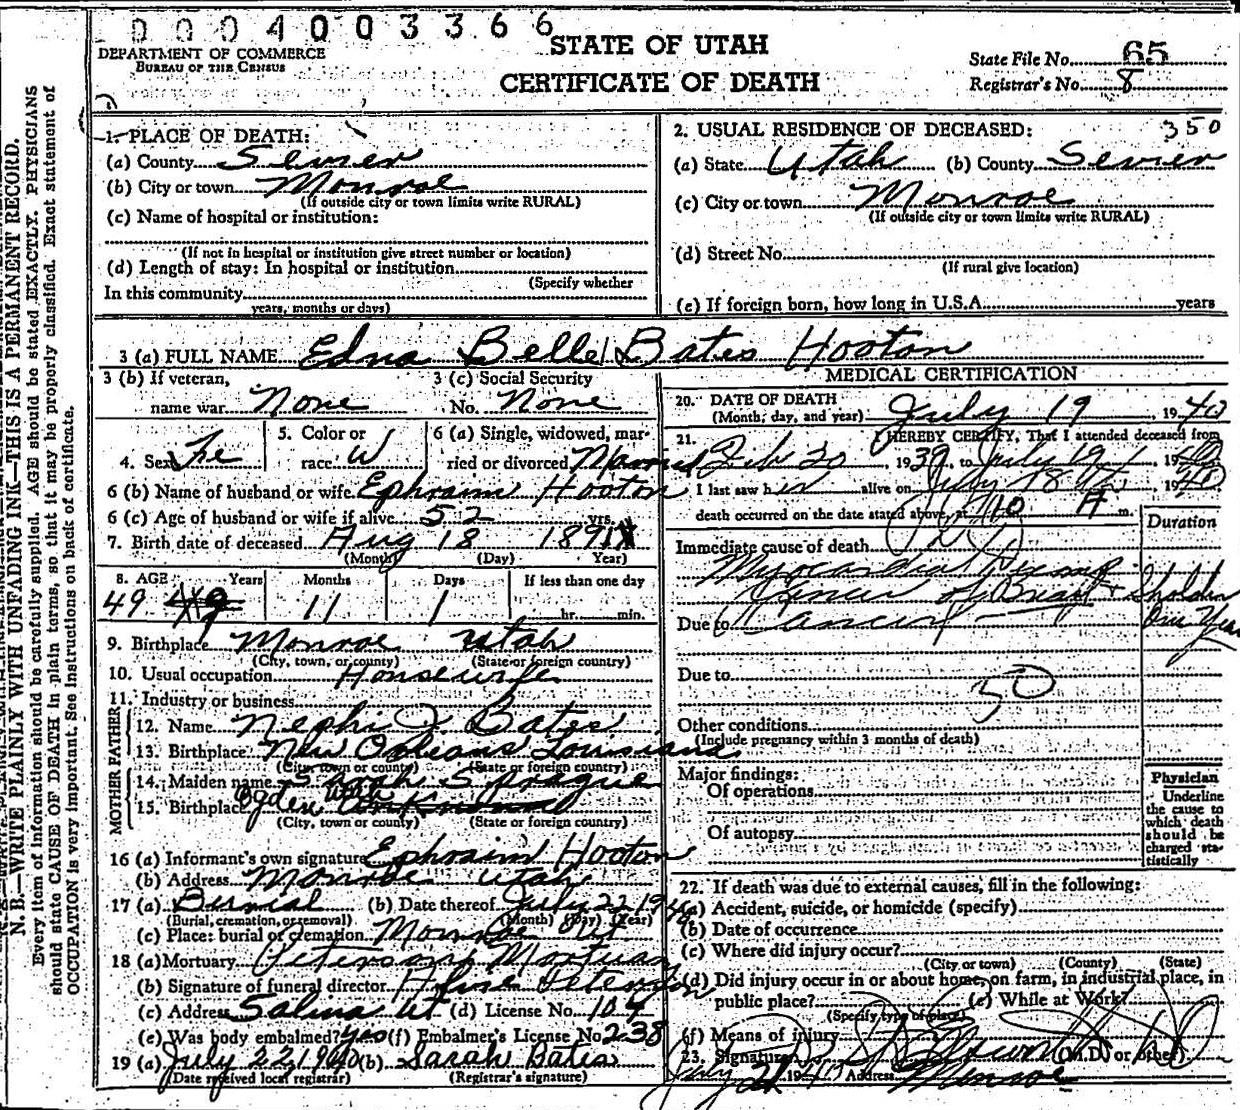 0004003366
DEPARTMENT OF COMMERCE
BUREAU OF THE CENSUS
STATE OF UTAH
CERTIFICATE OF DEATH
State File No. 65
Registrar's No. 8
N. B.—WRITE PLAINLY WITH UNFADING INK—THIS IS A PERMANENT RECORD.
Every item of information should be carefully supplied. AGE should be stated EXACTLY. PHYSICIANS
should state CAUSE OF DEATH in plain terms, so that it may be properly classified. Exact statement of
OCCUPATION is very important. See instructions on back of certificate.
1. PLACE OF DEATH:
(a) County Sevier
(b) City or town Monroe
(If outside city or town limits write RURAL)
(c) Name of hospital or institution:
(If not in hospital or institution give street number or location)
(d) Length of stay: In hospital or institution
(Specify whether
In this community
years, months or days)
2. USUAL RESIDENCE OF DECEASED: 350
(a) State Utah (b) County Sevier
(c) City or town Monroe
(If outside city or town limits write RURAL)
(d) Street No.
(If rural give location)
(e) If foreign born, how long in U.S.A. years
3 (a) FULL NAME Edna Belle Bates Hooton
3 (b) If veteran, name war None
3 (c) Social Security No. None
4. Sex Fe
5. Color or race W
6 (a) Single, widowed, married or divorced Married
6 (b) Name of husband or wife Ephraim Hooton
6 (c) Age of husband or wife if alive 52 yrs.
7. Birth date of deceased Aug 18 1891
(Month) (Day) Year)
8. AGE Years Months Days If less than one day
49 49 11 1 hr. min.
9. Birthplace Monroe Utah
(City, town, or county) (State or foreign country)
10. Usual occupation Housewife
11. Industry or business
FATHER
12. Name Nephi J Bates
13. Birthplace New Orleans Louisiana
(City, town or county) (State or foreign country)
MOTHER
14. Maiden name Sarah Sprague
15. Birthplace Ogden Utah
(City, town or county) (State or foreign country)
16 (a) Informant's own signature Ephraim Hooton
(b) Address Monroe Utah
17 (a) Burial (b) Date thereof July 22 1940
(Burial, cremation, or removal) (Month) (Day) (Year)
(c) Place: burial or cremation Monroe Ut
18 (a) Mortuary Petersons Mortuary
(b) Signature of funeral director Peterson
(c) Address Salina Ut (d) License No. 104
(e) Was body embalmed? yes (f) Embalmer's License No 238
19 (a) July 22 1940 (b) Sarah Bates
(Date received local registrar) (Registrar's signature)
MEDICAL CERTIFICATION
20. DATE OF DEATH
(Month, day, and year) July 19, 1940
21. I HEREBY CERTIFY, That I attended deceased from
Feb 20, 1939, to July 19, 1940
I last saw her alive on July 18, 1940
death occurred on the date stated above, at 110 A m.
Duration
Immediate cause of death
Myocardial
Cancer of Breast
Due to Cancer One Year
Due to
50
Other conditions
(Include pregnancy within 3 months of death)
Major findings:
Of operations
Of autopsy
Physician
Underline the cause to which death should be charged statistically
22. If death was due to external causes, fill in the following:
(a) Accident, suicide, or homicide (specify)
(b) Date of occurrence
(c) Where did injury occur?
(City or town) (County) (State)
(d) Did injury occur in or about home, on farm, in industrial place, in
public place? (e) While at Work?
(Specify type of place)
(f) Means of injury
23. Signature (M.D. or other)
July 21 1940 Address Monroe